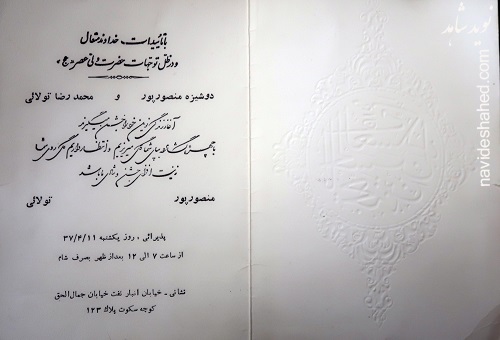 با تائیدات خداوند متعال
و در ظل توجهات حضرت ولی عصر «عج»
دوشیزه منصورپور و محمد رضا تولائی
آغاز زندگی نوین خود را جشن میگیرند
با چهره گشاده بپای شما گل میریزیم و انتظار داریم گل روی شما
زینت افزای جشن و شادی ما باشد
منصورپور تولائی
پذیرائی ، روز یکشنبه ۳۷/۴/۱۱
از ساعت ۷ الی ۱۲ بعداز ظهر بصرف شام
نشانی - خیابان انبار نفت خیابان جمال‌الحق
کوچه سکوت پلاک ۱۲۳
نوید شاهد
navideshahed.com